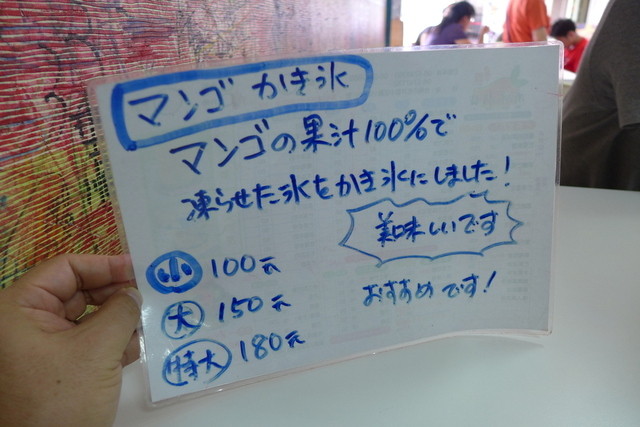 マンゴ かき氷
マンゴの果汁100%で
凍らせた氷をかき氷にしました!
美味しいです
小 100元
大 150元
おすすめです!
特大 180元